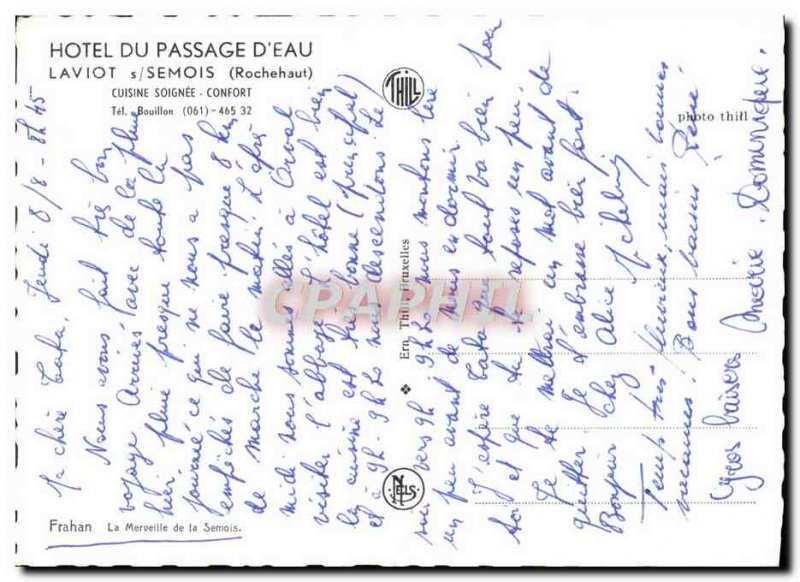 HOTEL DU PASSAGE D'EAU
LAVIOT s/SEMOIS (Rochehaut)
CUISINE SOIGNÉE - CONFORT
Tél. Bouillon (061) - 465 32
THILL
photo thill
Ern. Thill Bruxelles
NELS
Frahan La Merveille de la Semois.
CPARAPHIL
Jeudi 8/8 - 8h 45
chère Tata,
Nous avons fait très bon
voyage Arrivés avec de la pluie
hier, pluie presque toute la
journée ce qui ne nous a pas
empêchés de faire presque 8 km
de marche le matin. L'après
midi nous sommes allés à Orval
visiter l'abbaye. L'hôtel est bien
la cuisine est très bonne (principal)
et à 9h - 9h 20 nous descendons le
soir vers 9h 9h20 nous montons lire
un peu avant de nous endormir
J'espère Tata que tout va bien pour
toi et que tu te reposes un peu.
Je te mettrai un mot avant de
quitter Je t'embrasse bien fort.
Bonjour chez Alice
Temps très pluvieux, mais bonnes
vacances. Bons baisers René
Gros baisers Dominique.